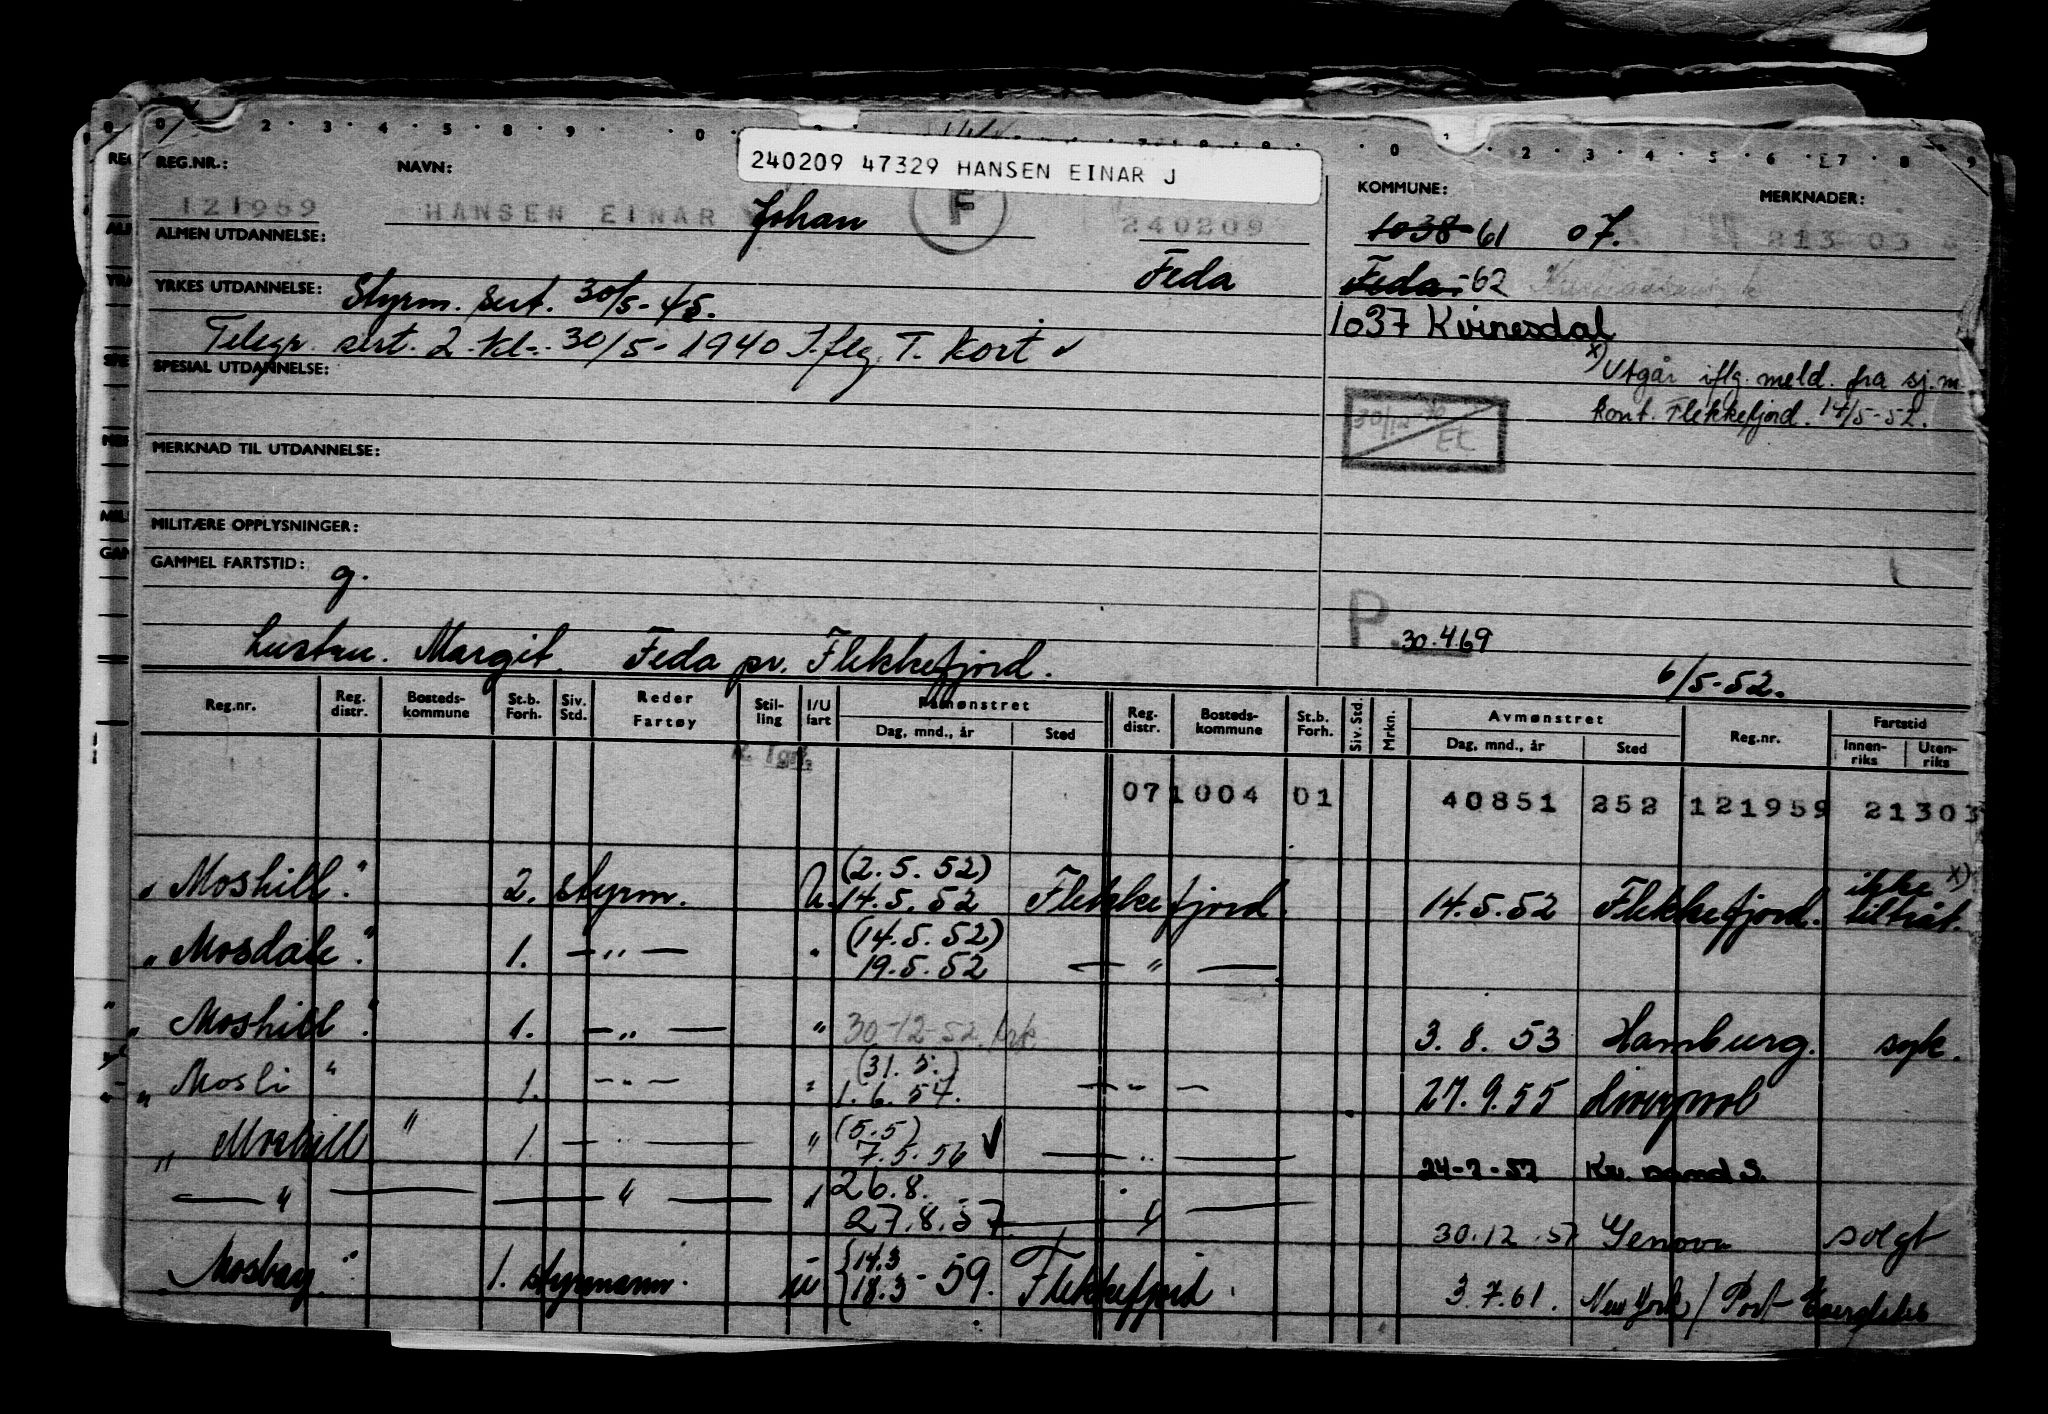 240209 47329 HANSEN EINAR J
REG.NR.: NAVN: KOMMUNE: MERKNADER:
121959 HANSEN EINAR Johan F 240209 1038-61 07. 213 03
ALMEN UTDANNELSE: Feda Feda-62
YRKES UTDANNELSE: Styrm. sert. 30/5-45. 1037 Kvinesdal
Telegr. sert. 2. kl. 30/5-1940 I.flg. T. kort ✓
x) Utgår iflg. meld. fra sj.m.
kont. Flekkefjord. 14/5-52.
SPESIAL UTDANNELSE:
30/12- Et
MERKNAD TIL UTDANNELSE:
MILITÆRE OPPLYSNINGER:
GAMMEL FARTSTID: g.
P. 30.4.69
Hustru. Margit. Feda pr. Flekkefjord. 6/5-52.
Reg.nr. Reg. distr. Bosteds-kommune St.b. Forh. Siv. Std. Reder Fartøy Stil-ling I/U fart Påmønstret Dag, mnd., år Sted Reg. distr. Bosteds-kommune St.b. Forh. Siv. Std. Mrkn. Avmønstret Dag, mnd., år Sted Reg.nr. Fartstid Innen-riks Uten-riks
071004 01 40851 252 121959 21303
"Moshill" 2. styrm. U. (2.5.52) 14.5.52 Flekkefjord. 14.5.52 Flekkefjord. ikke tiltråt. x)
"Mosdale" 1. — " — " (14.5.52) 19.5.52 — " —
"Moshill" 1. — " — " 30-12-52 3.8.53 Hamburg. syk.
"Mosli" 1. — " — " (31.5.) 1.6.54. — " — 27.9.55 Liverpool
"Moshill" 1 — " — " (5.5) 7.5.56 ✓ — " — 24-7-57 Kr. sand S.
— " — — " — " 26.8. 27.8.57 — " — 30.12.57 Genova solgt
"Mosbay" 1. styrmann. U {14.3 18.3-59. Flekkefjord. 3.7.61. New York / Port